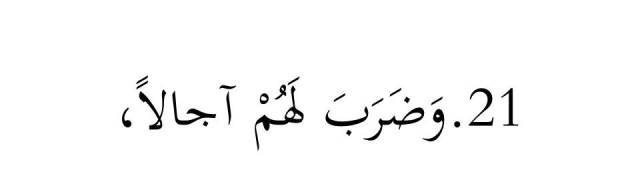 21.وَضَرَبَ لَهُمْ آجالاً،